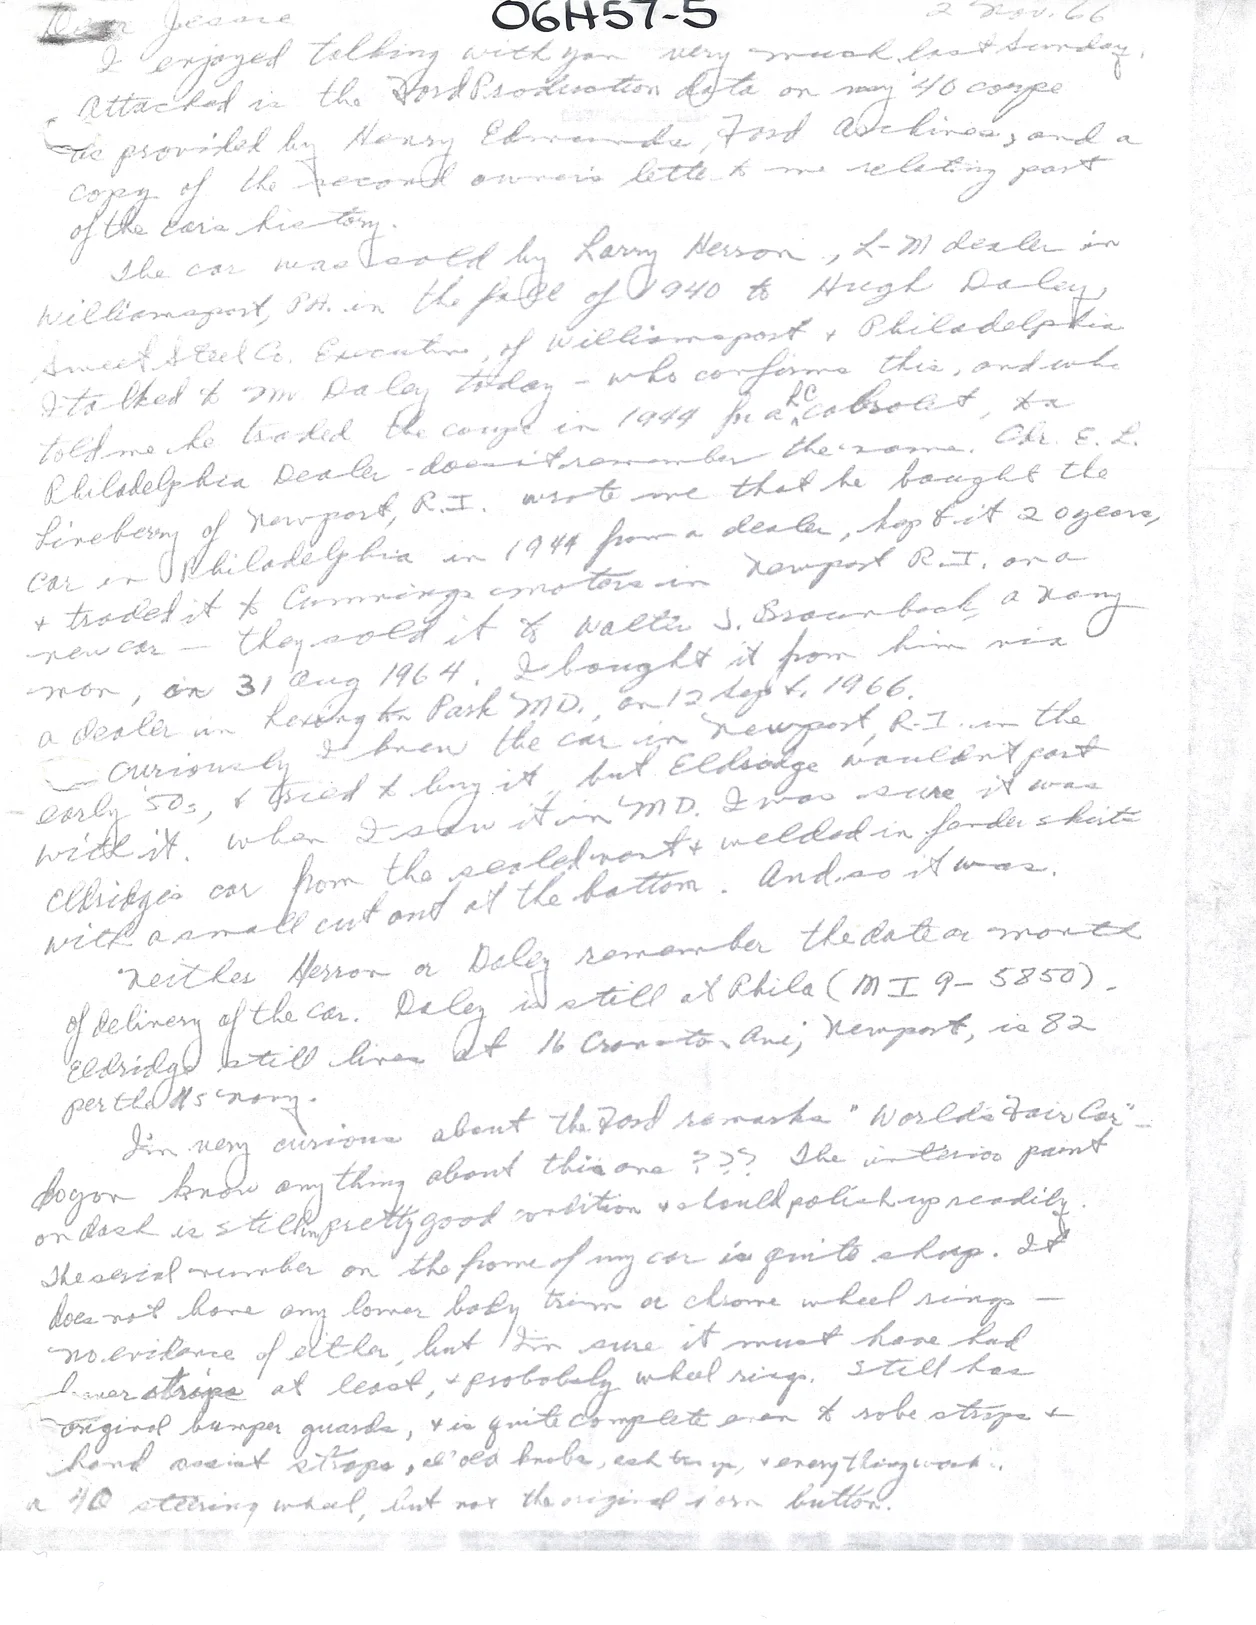 06H57-5
Dear Jessie 2 Nov. 66
I enjoyed talking with you very much last Sunday.
Attached is the Ford Production data on my '40 coupe
as provided by Henry Edmunds, Ford Archives, and a
copy of the second owner's letter to me relating part
of the car's history.
The car was sold by Larry Herron, L-M dealer in
Williamsport, PA. in the fall of 1940 to Hugh Daley,
Sweet Steel Co. Executive, of Williamsport & Philadelphia
I talked to Mr. Daley today - who confirms this, and who
told me he traded the coupe in 1944 for a LC cabriolet, to a
Philadelphia Dealer - doesn't remember the name. Cdr. E. L.
of Newport, R.I. wrote me that he bought the
car in Philadelphia in 1944 from a dealer, kept it 20 years,
& traded it to Cummings motors in Newport R.I. on a
new car — they sold it to Walter J. Brownback, a Navy
man, on 31 Aug 1964. I bought it from him via
a dealer in Lexington Park MD., on 12 Sept. 1966.
Curiously I knew the car in Newport, R.I. in the
early '50s, & tried to buy it, but Eldridge wouldn't part
with it. When I saw it in MD. I was sure it was
Eldridge's car from the & welded in fender skirts
with a small cut out at the bottom. And so it was.
Neither Herron or Daley remember the date or month
of delivery of the car. Daley is still at Phila (MI 9-5850).
Eldridge still lives at 16 Cranston Ave; Newport, is 82
per the US Navy.
I'm very curious about the Ford remarks "World's Fair Car" -
Do you know anything about this one ??? The interior paint
on dash is still in pretty good condition & should polish up readily.
The serial number on the frame of my car is quite sharp. It
does not have any lower body trim or chrome wheel rings —
no evidence of either, but I'm sure it must have had
lower strips at least, & probably wheel rings. Still has
original bumper guards, & is quite complete even to robe straps &
hand assist straps, all old knobs, ash tray, & everything works.
a '40 steering wheel, but not the original horn button.